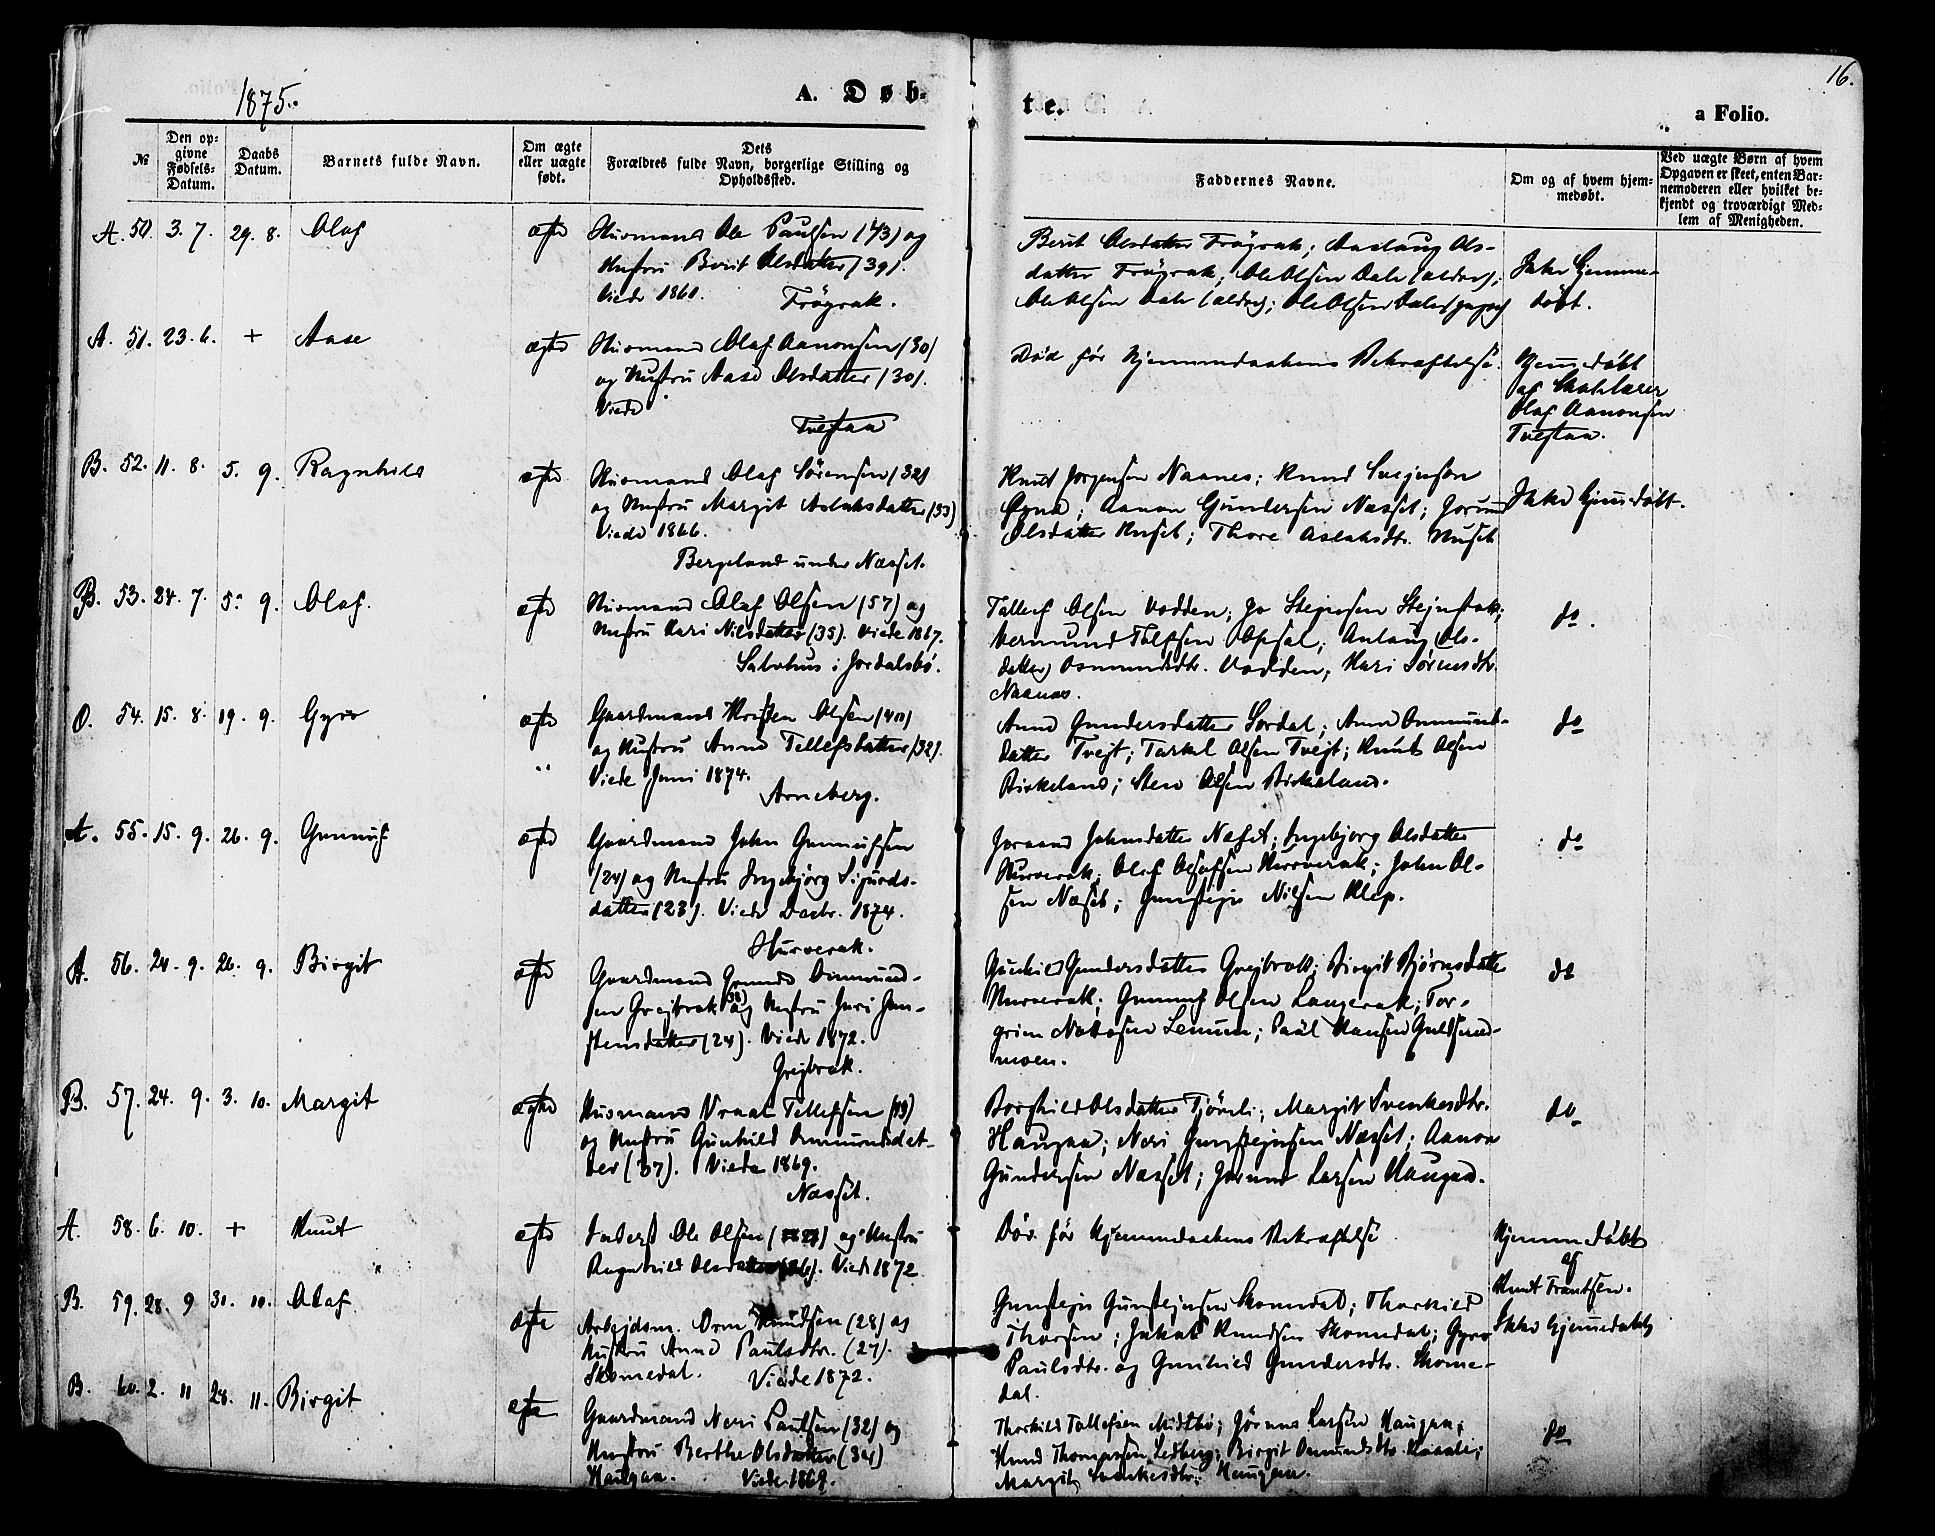 1875.
A. Døb-
te.
16.
a Folio.
№
Den op-
givne
Fødsels-
Datum.
Daabs
Datum.
Barnets fulde Navn.
Om ægte
eller uægte
født.
Dets
Forældres fulde Navn, borgerlige Stilling og
Opholdssted.
Faddernes Navne.
Om og af hvem hjem-
medøbt.
Ved uægte Børn af hvem
Opgaven er skeet, enten Bar-
nemoderen eller hvilket be-
kjendt og troværdigt Med-
lem af Menigheden.
A. 50. 3. 7. 29. 8. Olaf
Husmand Ole Paulsen (43) og
Hustru Berit Olsdatter (39).
Viede 1860.
Frøyrak.
Berit Olsdatter Frøyrak; Aaslaug Ols-
datter Frøyrak; Ole Olsen Dale (ældre);
Ole Olsen Dale (ældre); Ole Olsen Dale
Ikke hjemme-
døbt.
A. 51. 23. 6. + Aase ægte
Husmand Olaf Aanonsen (30)
og Hustru Aase Olsdatter (30).
Viede
Tvejtaa
Død før Hjemmedaabens Bekræftelse.
Hjemdøbt
af Skolelærer
Olaf Aanonsen
Tvejtaa.
B. 52. 11. 8. 5. 9. Ragnhild
Husmand Olaf Sørensen (32)
og Hustru Margit Aslaksdatter (33)
Viede 1866.
Bergeland under Næsset.
Knut Jorgensen Naanes; Knud Svejnson
Øyna; Aanon Gundersen Næsset; Jorund
Olsdatter Huset; Thore Aslaksdtr. Huset
Ikke hjemdøbt.
B. 53. 24. 7. 5. 9. Olaf.
Husmand Olaf Olsen (57) og
Hustru Kari Nilsdatter (35). Viede 1867.
i Jordalsbø.
Tallef Olsen Vodden; Jo
Opsal; Aslaug Ols-
datter Vodden; Kari Sørensdtr.
Naanes.
do.
O. 54. 15. 8. 19. 9. Gyro
Gaardmand Kristen Olsen (40)
og Hustru Anne Tellefsdatter (32).
Viede Juni 1874.
Arneberg.
Anne Gundersdatter Sordal; Anne Onmund-
datter Tvejt; Tarkel Olsen Tvejt; Knut Olsen
Birkeland; Sten Olsen Birkeland.
do
A. 55. 15. 9. 26. 9. Gunnuf
Gaardmand John Gunnufsen
(24) og Hustru Ingebjørg Sigurds-
datter (23). Viede Decbr. 1874.
Hurverak.
Joraand Johnsdatter Næset; Ingebjorg Olsdatter
Hurverak; Olef Hurverak; John Ol-
sen Næset; Gunstejn Nilsen Klep.
do
A. 56. 24. 9. 26. 9. Birgit
Gaardmand Onmund-
sen Grejbrok (38) og Hustru Guri Gun-
stensdatter (24). Viede 1872.
Grejbrok.
Gunhild Gundersdatter Grejbrok; Birgit Bjørnsdatter
Hurverak; Gunnuf Olsen Langerak; Tor-
moen.
do
B. 57. 24. 9. 3. 10. Margit ægte
Husmand Vraal Tellefsen (49)
og Hustru Gunhild Onmundsdat-
ter (37). Viede 1869.
Næsset.
Borghild Olsdatter Tjømli; Margit Svenkesdtr.
Haugaa; Neri Gunstejnsen Næsset; Aanon
Gundersen Næsset; Jorund Larsen Haugaa.
do
A. 58. 6. 10. + Knut
Inderst Ole Olsen og Hustru
Ragnhild Olsdatter. Viede 1872.
Død før Hjemmedaabens Bekræftelse
Hjemmedøbt
af
Knut Frantsen.
B. 59. 28. 9 31. 10. Olaf.
Arbejdsm. Orm Knudsen (28) og
Hustru Anne Paulsdtr. (27).
Skomedal. Viede 1872.
Gunstejn Gunstejnsen Skomedal; Thorkild
Thorsen; Jakob Knudsen Skomedal; Gyro
Paulsdtr. og Gunhild Gundersdtr. Skome-
dal.
Ikke hjemmedøbt
B. 60. 2. 11 28. 11. Birgit
Gaardmand Neri Paulsen (32) og
Hustru Berthe Olsdatter (34)
Haugaa. Viede 1869.
Thorkild Tallefsen Midtbø; Jørund Larsen Haugaa;
Knud Thomassen Birgit Onmundsdtr.
Margit Svenkesdtr. Haugaa.
do